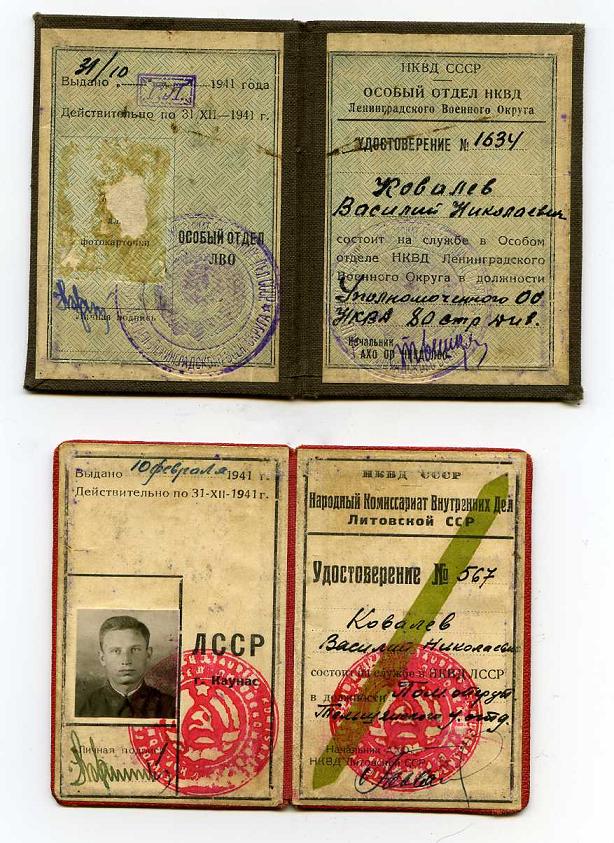 31/10
Выдано 1941 года
Действительно по 31-XII-1941 г.
фотокарточки
ОСОБЫЙ ОТДЕЛ
ЛВО
Личная подпись
НКВД СССР
ОСОБЫЙ ОТДЕЛ НКВД
Ленинградского Военного Округа
УДОСТОВЕРЕНИЕ № 1634
Ковалев
Василий Николаевич
состоит на службе в Особом
отделе НКВД Ленинградского
Военного Округа в должности
Уполномоченного ОО
НКВД 80 стр див.
Начальник
АХО ОО
Выдано 10 февраля 1941 г.
Действительно по 31-XII-1941 г.
ЛССР
г. Каунас
Личная подпись
НКВД СССР
Народный Комиссариат Внутренних Дел
Литовской ССР
Удостоверение № 567
Ковалев
Василий Николаевич
состоит на службе в НКВД ЛССР
в должности Пом. опер
Тельшяйского у. отд.
Начальник АХО
НКВД Литовской ССР